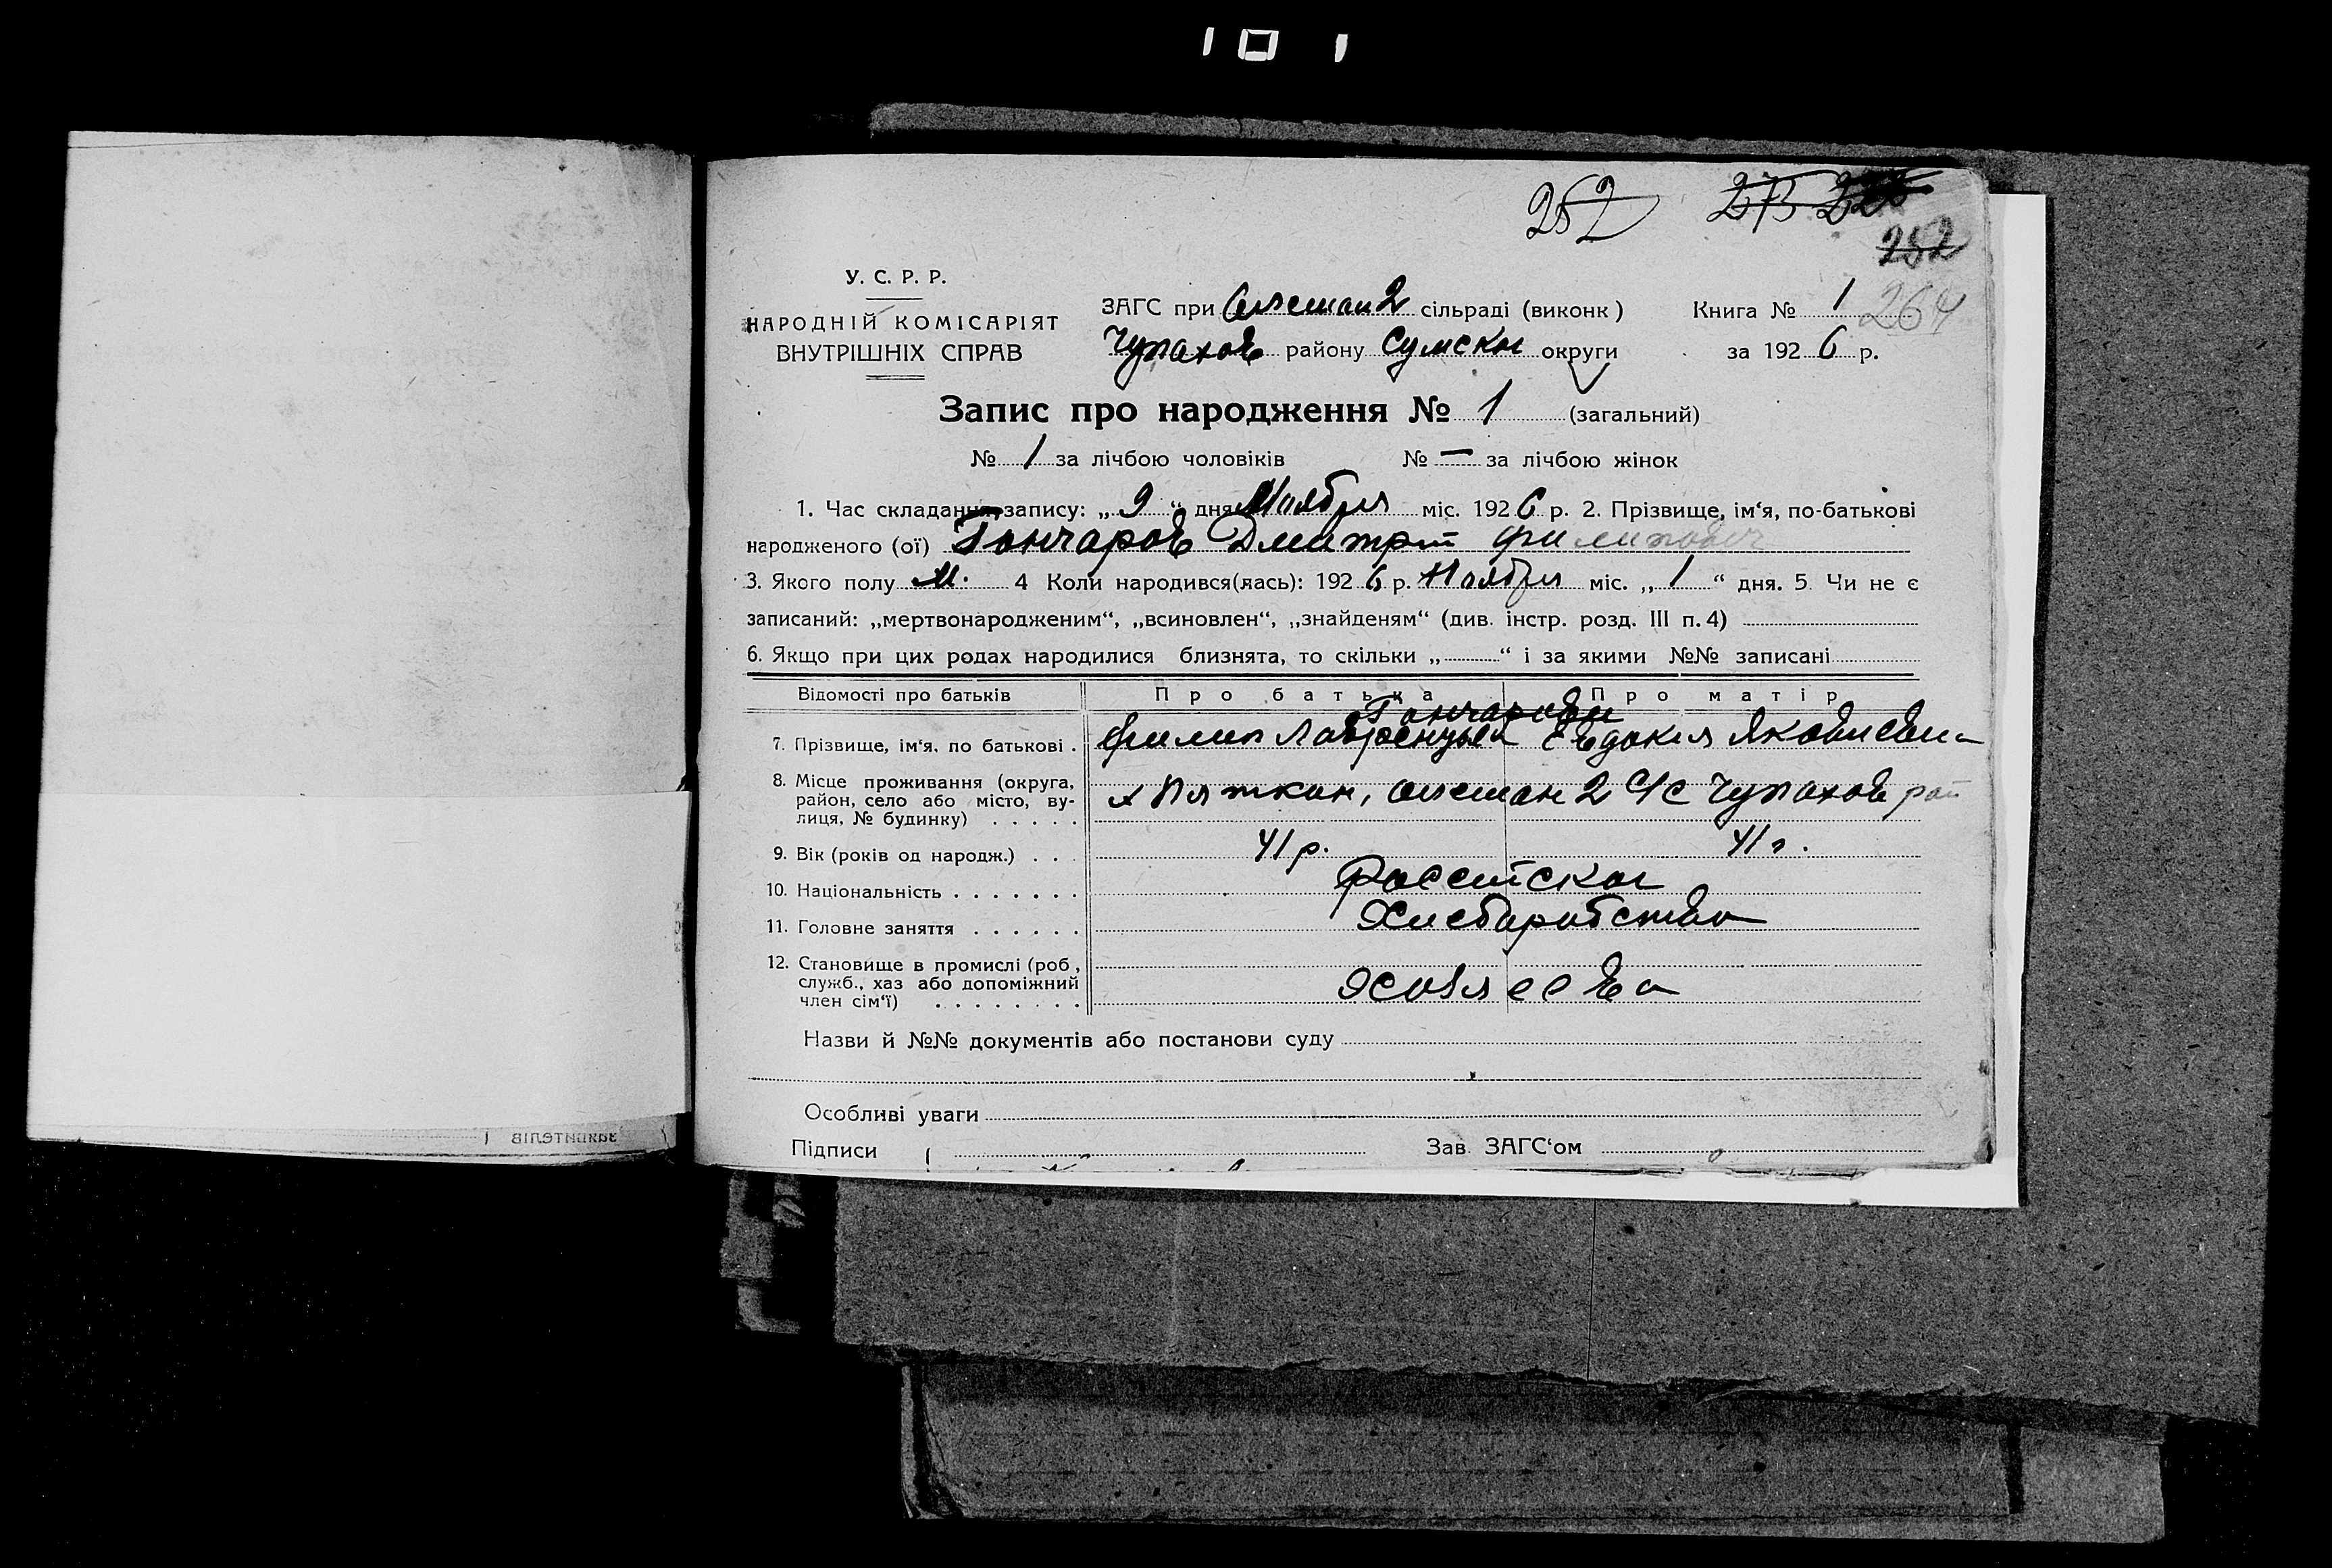 101
252 273
252
У. С. Р. Р.
НАРОДНІЙ КОМІСАРІЯТ
ВНУТРІШНІХ СПРАВ
ЗАГС при 2 сільраді (виконк)
Чупахов району Сумской округи
Книга № 1
264
за 1926 р.
Запис про народження № 1 (загальний)
№ 1 за лічбою чоловіків № — за лічбою жінок
1. Час складання запису: „ 9 “ дня Ноября міс. 1926 р. 2. Прізвище, ім‘я, по-батькові
народженого (ої) Гончаров Дмитрий Филипович
3. Якого полу м. 4 Коли народився(лась): 1926 р. Ноября міс. „ 1 “ дня. 5. Чи не є
записаний: „мертвонародженим“, „всиновлен“, „знайденям“ (див. інстр. розд. III п. 4)
6. Якщо при цих родах народилися близнята, то скільки „ “ і за якими №№ записані
Відомості про батьків Про батька Про матір
Гончарови
7. Прізвище, ім‘я, по батькові . Филип Евдокия Яковлевна
8. Місце проживання (округа,
район, село або місто, ву-
лиця, № будинку) . . . . .
х 2 С/С Чупахов рай
9. Вік (років од народж.) . . . 41 р. 41 г.
10. Національність . . . . . . . Российской
11. Головне заняття . . . . . . Хлебаробство
12. Становище в промислі (роб,
служб., хаз або допоміжний
член сім‘ї) . . . . . . . .
Назви й №№ документів або постанови суду
Особливі уваги
Підписи Зав. ЗАГС‘ом